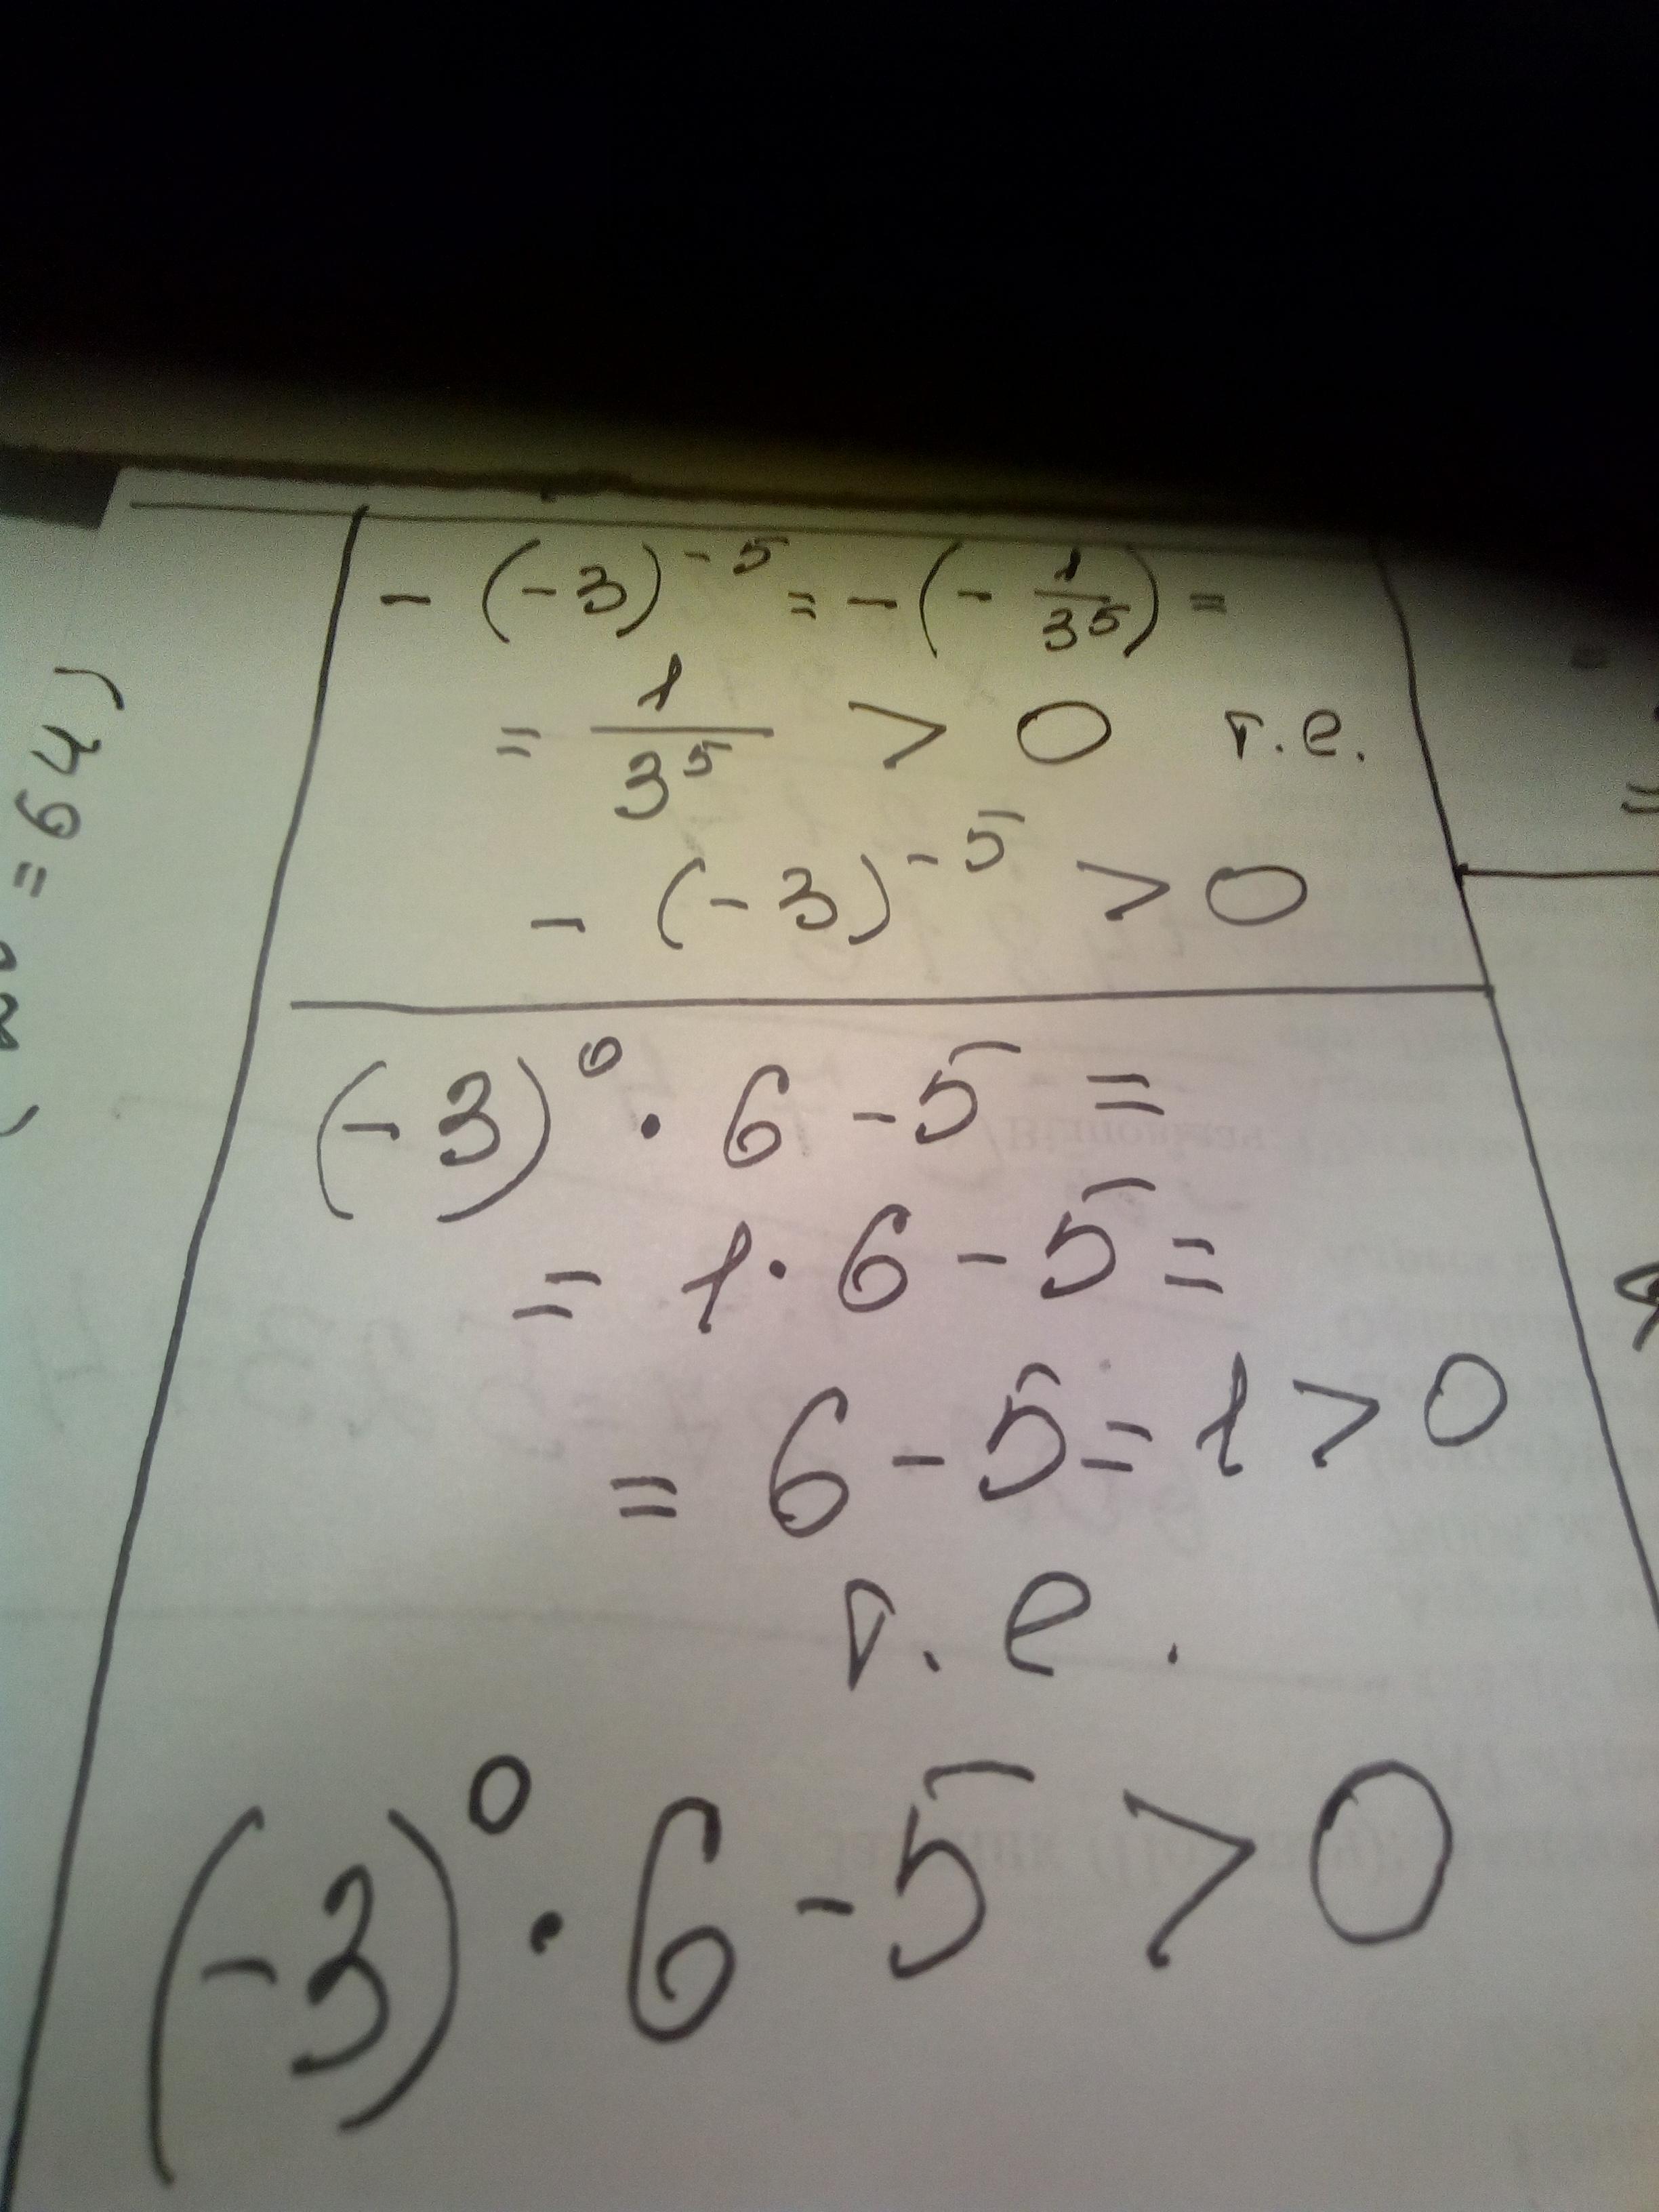 - (-3)^-5 = - (- 1/3^5) =
= 1/3^5 > 0 т.е.
- (-3)^-5 > 0
(-3)^0 · 6 - 5 =
= 1 · 6 - 5 =
= 6 - 5 = 1 > 0
т.е.
(-3)^0 · 6 - 5 > 0
= 64)